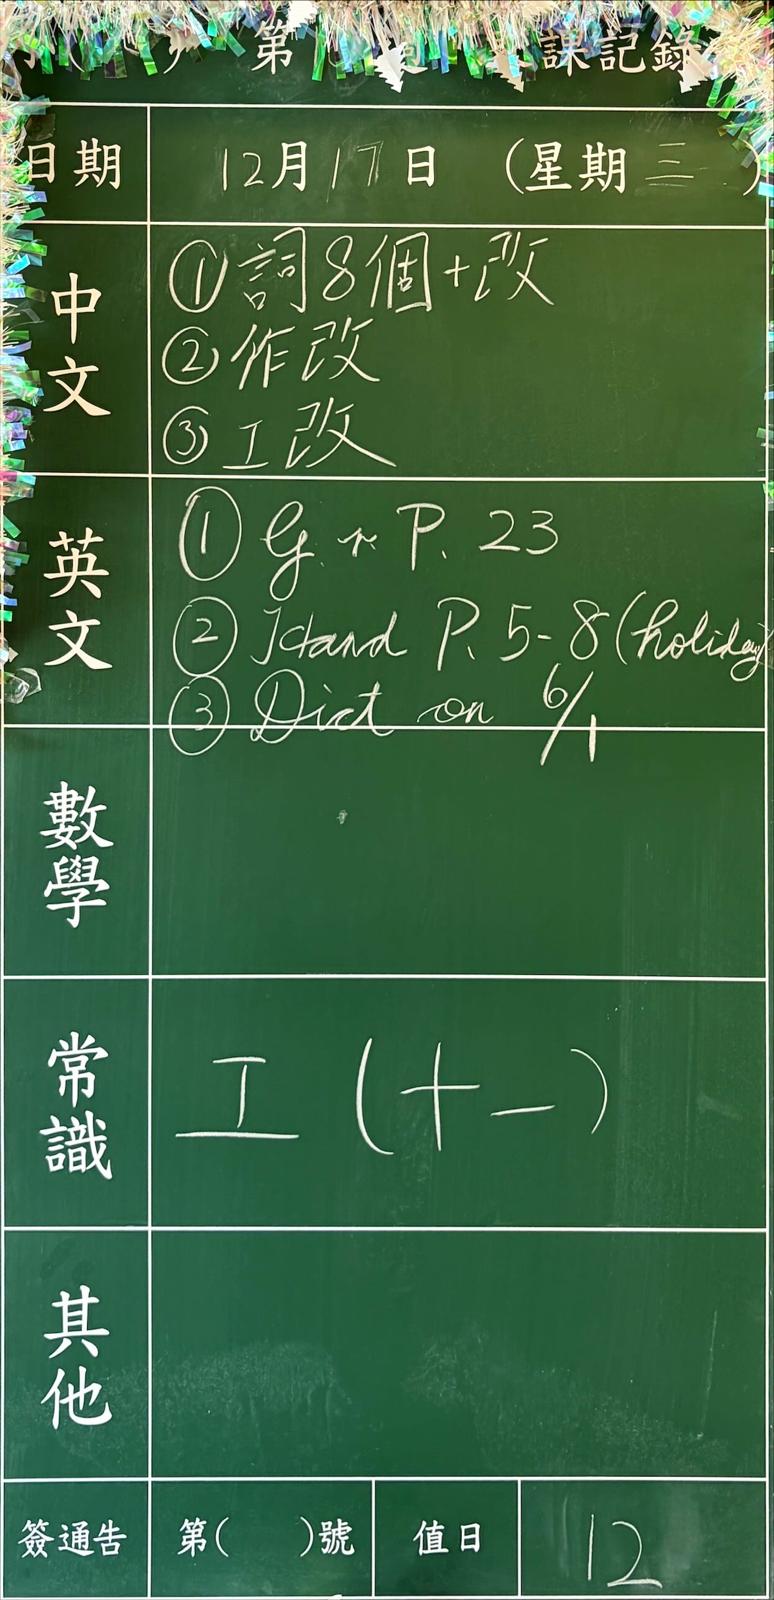 第
課記錄
日期 12月17日 (星期三)
中文
①詞8個+改
②作改
③工改
英文
① G.r. P. 23
② P. 5-8 (holiday)
③ Dict on 6/1
數學
常識
工 (十一)
其他
簽通告 第( )號 值日 12